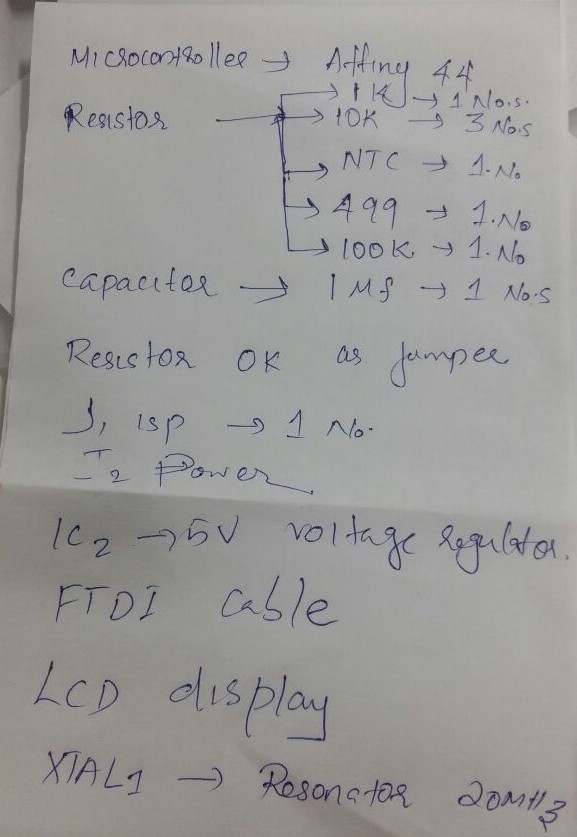 Microcontroller → Attiny 44
Resistor → 1K → 1 No.s.
→ 10K → 3 No.s
→ NTC → 1. No
→ 499 → 1. No
→ 100K → 1. No
Capacitor → 1 Mf → 1 No.s
Resistor OK as jumper
J, isp → 1 No.
J2 Power
IC2 → 5V voltage regulator.
FTDI Cable
LCD display
XTAL1 → Resonator 20MHz